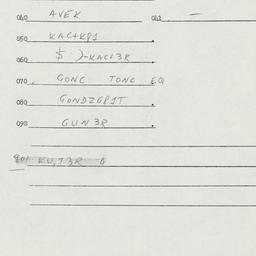 040 AVEK 041 —
050 KAC+K91
060 $ )-KAC+3R
070 GONC TONC EQ
080 GONDZG91T
090 GUN3R